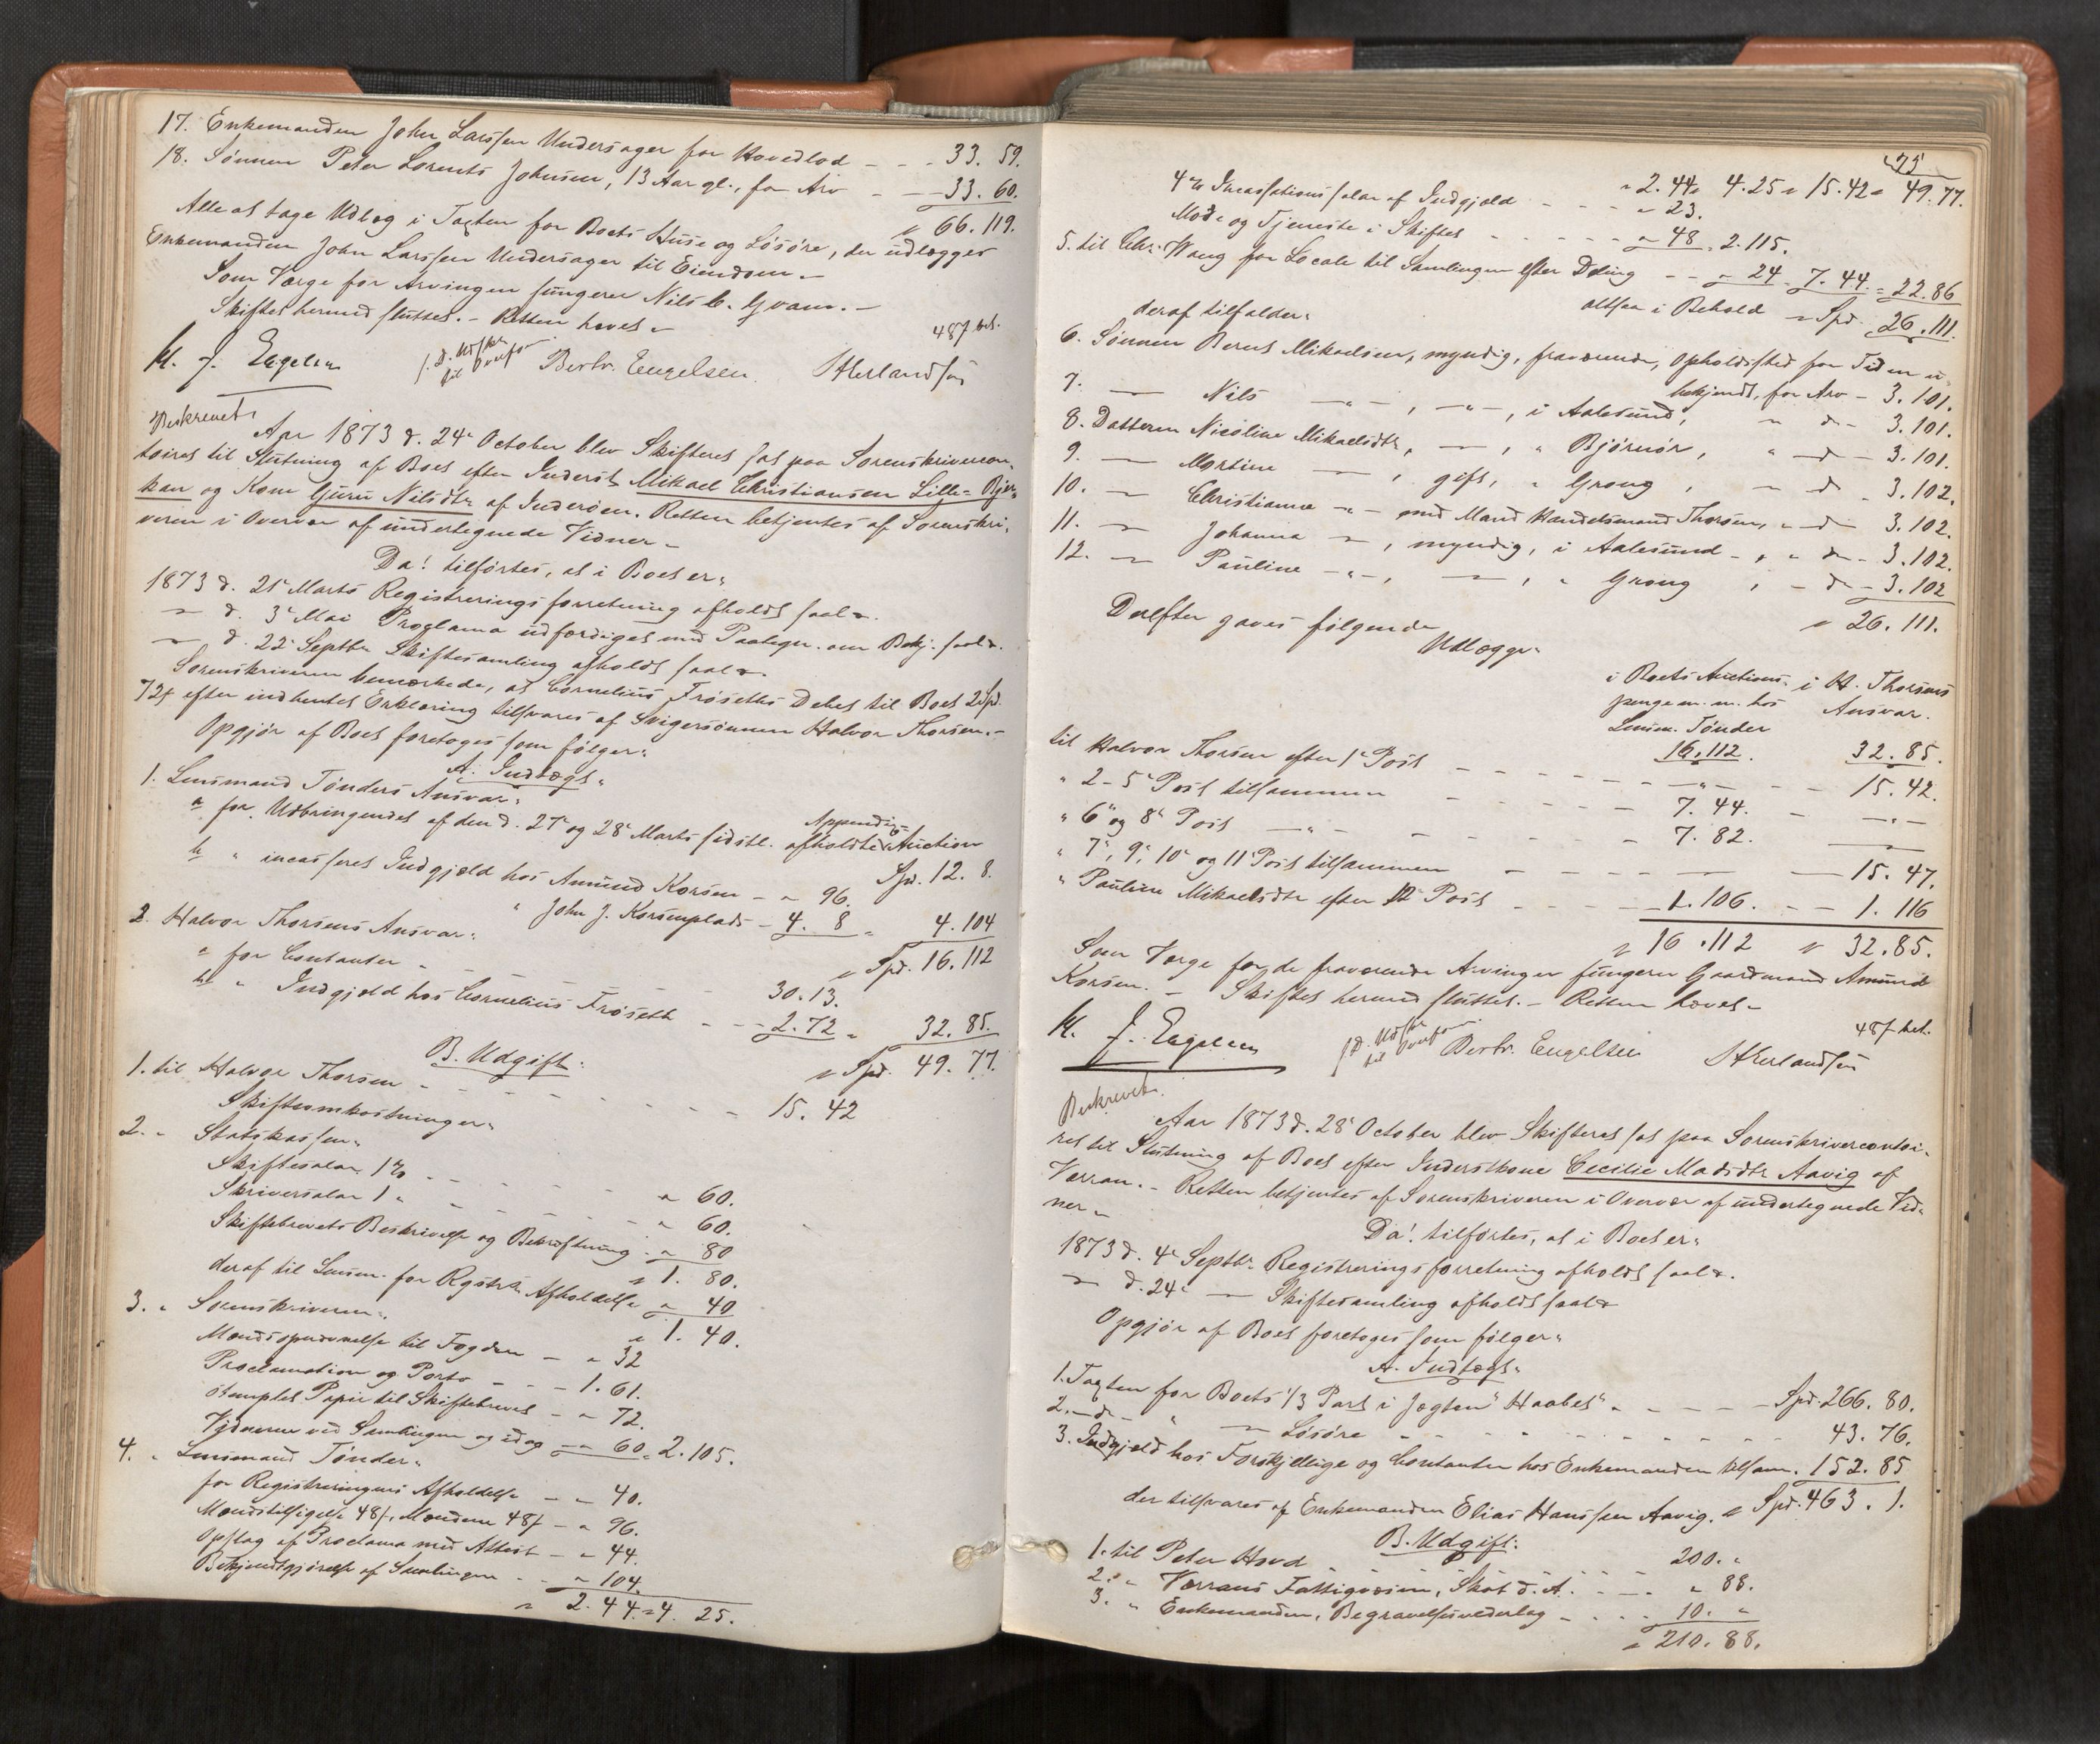 17. Enkemanden John Larssen Undersager for Hovedlod - - - 33. 59.
18. Sønnen Peter Lorents Johnsen, 13 Aar gl., for Arv - - 33. 60.
" 66. 119.
Alle at tage Udlæg i Taxten for Boets Huse og Løsøre, der udlægges
Enkemanden John Larssen Undersager til Eiendom.-
Som Værge for Arvingen fungerer Nils C. Gvam.-
Skiftet hermed sluttet. - Retten hævet.-
48 f bet.
M. J. Engelsen Bertr. Engelsen Herlandsen
Beskrevet.
Aar 1873 d. 24de October blev Skifteret sat paa Sorenskrivercon-
toiret til Slutning af Boet efter Inderst Mikael Christiansen Lille-Bjer-
kan og Kone Guru Nilsdtr af Inderøen. Retten betjentes af Sorenskri-
veren i Overvær af undertegnede Vidner.-
Da! tilførtes, at i Boet er:
1873 d. 21de Marts Registreringsforretning afholdt saal.
— d. 3de Mai Proclama udfærdiget med Paategn. om Bekj. saal.
— d. 22de Septbr Skiftesamling afholdt saal.
Sorenskriveren bemærkede, at Cornelius Frøseths Debet til Boet 2 Spd.
72 f efter indhentet Erklæring tilsvares af Svigersønnen Halvor Thorsen.-
Opgjør af Boet foretoges som følger:
A. Indtægt:
1. Lensmand Tønders Ansvar:
a for Udbringendet af den d. 27de og 28de Marts sidstl. afholdte Auction
Appendix
Spd. 12. 8.
b " incasseret Indgjæld hos Amund Korsen - " 96.
" John J. Korsenplads - 4. 8 " 4. 104
" Spd. 16. 112
2. Halvor Thorsens Ansvar:
a for Contanter - - - 30. 13.
b " Indgjæld hos Cornelius Frøseth - - 2. 72 " 32. 85.
" Spd. 49. 77.
B. Udgift:
1. til Halvor Thorsen - - - - 15. 42
Skifteomkostninger:
2. " Statskassen:
Skiftesalar 1 % - - - " 60.
Skriversalar 1 " - - - " 60.
Skiftebrevets Beskrivelse og Bekræftning - " 80
" 1. 80.
deraf til Lensm. for Rgstr. Afholdelse " 40
" 1. 40.
3. " Sorenskriveren:
Mandsopnævnelse til Fogden - " 32
Proclamation og Porto - - - 1. 61.
stemplet Papir til Skiftebrevet - " 72.
Vidnerne ved Samlingen og idag - " 60. 2. 105.
4. " Lensmand Tønder:
for Registreringens Afholdelse - " 40.
Mændstilsigelse 48 f, Mændene 48 f - " 96.
Opslag af Proclama med Attest - " 44.
Bekjendtgjørelse af Samlingen - " 104.
" 2. 44 " 4. 25.
75
" 2. 44 " 4. 25 " 15. 42 " 49. 77.
4 % Incassationssalar af Indgjæld - - - " 23.
Møde og Tjeneste i Skiftet - - - " 48. 2. 115.
5. til Chr. Wang for Locale til Samlingen efter Deling - - " 24 7. 44. " 22. 86
altsaa i Behold " Spd. 26. 111.
deraf tilfalder:
6. Sønnen Bernt Mikaelsen, myndig, fraværende, Opholdssted for Tiden u-
bekjendt, for Arv - 3. 101.
7. — Nils — " — , — " — , i Aalesund, " d - 3. 101.
8. Datteren Nicoline Mikaelsdtr, — , " Bjørnør, " d - 3. 101.
9. — Martine — , gift, " Grong , " d - 3. 102.
10. — Christianna — " — med Mand Handelsmand Thorsen, " d - 3. 102.
11. — Johanna — , myndig, i Aalesund - , " d - 3. 102.
12. — Pauline — " —, — , " Grong , - d - 3. 102
" 26. 111.
Derefter gaves følgende
Udlægge:
i Boets Auctions- i H. Thorsens
penge m. m. hos Ansvar.
Lensm. Tønder
16. 112. 32. 85.
til Halvor Thorsen efter 1ste Post - - - " - - 15. 42.
" 2-5te Post tilsammen - - - 7. 44. - — " —
" 6te og 8de Post — " — - - - 7. 82. —
" 7de, 9de, 10de og 11te Post tilsammen - - — — 15. 47.
" Pauline Mikaelsdtr efter 12 Post - - - 1. 106. - - 1. 116
" 16. 112 " 32. 85.
Som Værge for de fraværende Arvinger fungerer Gaardmand Amund
Korsen. - Skiftet hermed sluttet. - Retten hævet.-
48 f bet.
M. J. Engelsen Bertr. Engelsen Herlandsen
Beskrevet.
Aar 1873 d. 28de October blev Skifteret sat paa Sorenskrivercontoi-
ret til Slutning af Boet efter Inderstkone Cecilie Madsdtr Aavig af
Værran. - Retten betjentes af Sorenskriveren i Overvær af undertegnede Vid-
ner.-
Da! tilførtes, at i Boet er:
1873 d. 4de Septbr Registreringsforretning afholdt saal.
— d. 24de — Skiftesamling afholdt saal.
Opgjør af Boet foretoges som følger:
A. Indtægt:
1. Taxten for Boets 1/3 Part i Jægten "Haabet" - - - - Spd. 266. 80.
2. — d — " — Løsøre - - - - - 43. 76.
3. Indgjæld hos Forskjellige og Contanter hos Enkemanden tilsam. 152. 85
der tilsvares af Enkemanden Elias Hanssen Aavig. " Spd. 463. 1.
B. Udgift:
1. til Peter Hovd - - - - 200. "
2. " Værrans Fattigvæsen, Skat d. A. - - " 88.
3. " Enkemanden, Begravelsesvederlag - - - 10. "
" 210. 88.